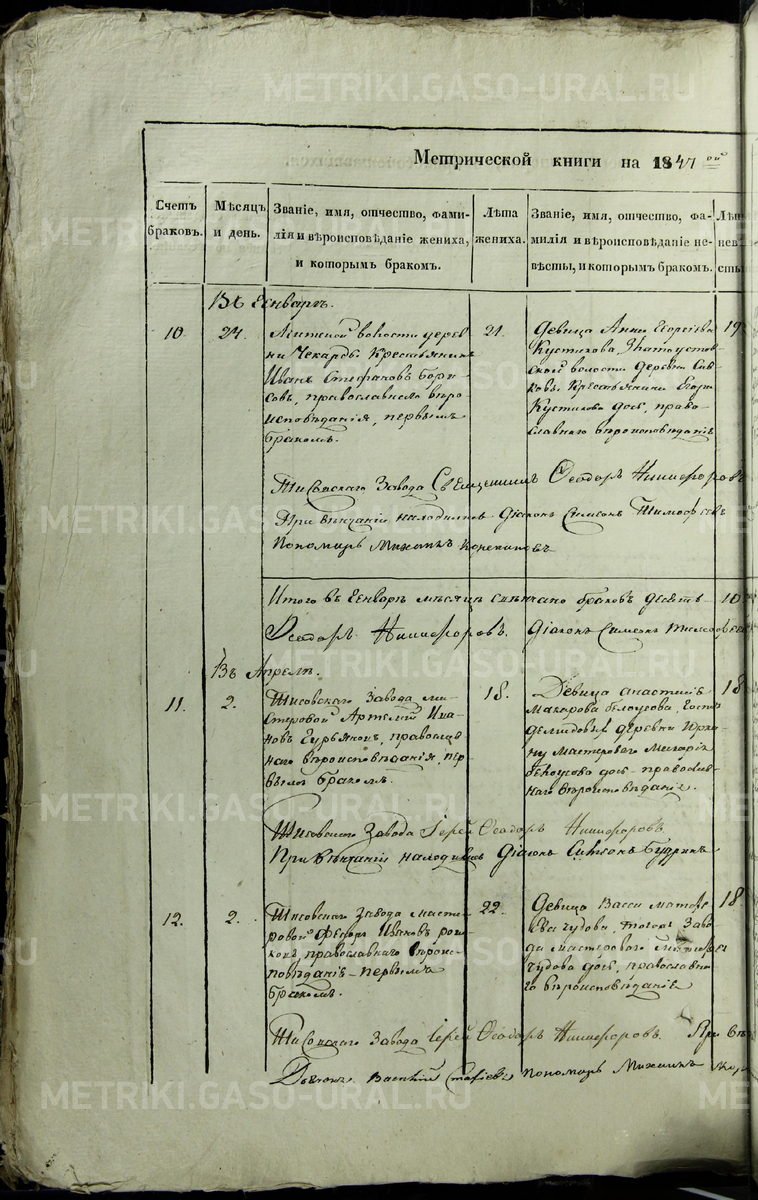 METRIKI.GASO-URAL.RU
Метрической книги на 1847ой
Счетъ браковъ.
Мѣсяцъ и день.
Званіе, имя, отчество, фамилія и вѣроисповѣданіе жениха, и которымъ бракомъ.
Лѣта жениха.
Званіе, имя, отчество, фамилія и вѣроисповѣданіе невѣсты, и которымъ бракомъ.
Лѣта невѣсты
Въ Генварѣ.
10.
24.
волости дерев
ни Чекарды Крестьянинъ
Иванъ Стефановъ Бори-
совъ, православнаго вѣро
исповѣданія, первымъ
бракомъ.
21.
Девица Анна Егорьева
Кустикова, Златоустов
ской волости деревни
Крестьянина Егора
Кустикова дочь, право-
славнаго вѣроисповѣданіе
19
Тисовскаго Завода Священникъ Феодоръ Никифоровъ
При вѣнчаніи находились Діаконъ Симеонъ Тимофеевъ
Пономарь Михаилъ
Итого въ Генварѣ мѣсяцѣ вѣнчано браковъ десять
10
Феодоръ Никифоровъ. Діаконъ Симеонъ
Въ Апрелѣ.
11.
2.
Тисовскаго Завода ма-
стеровой Артемій Ива
новъ Гурьяновъ, православ
наго вѣроисповѣданія, пер
вымъ бракомъ.
18.
Девица Анастасія
Макарова Белоусова, Госпо
Демидовыхъ деревни
Мастероваго Макара
Белоусова дочь православ
наго вѣроисповѣданіе.
18
Тисовскаго Завода Іерей Феодоръ Никифоровъ
При Вѣнчаніи находились Діаконъ Симеонъ Будринъ
12.
2.
Тисовскаго Завода масте
ровой Федоръ Ивановъ
православнаго вѣроис-
повѣданіе первымъ
бракомъ.
22.
Девица Васса Матфе
ева Чудова, того Заво
да мастероваго Матфея
Чудова дочь, православна
го вѣроисповѣданіе
18
Тисовскаго Завода Іерей Феодоръ Никифоровъ. При
Дьяконъ Василій пономарь Михаилъ